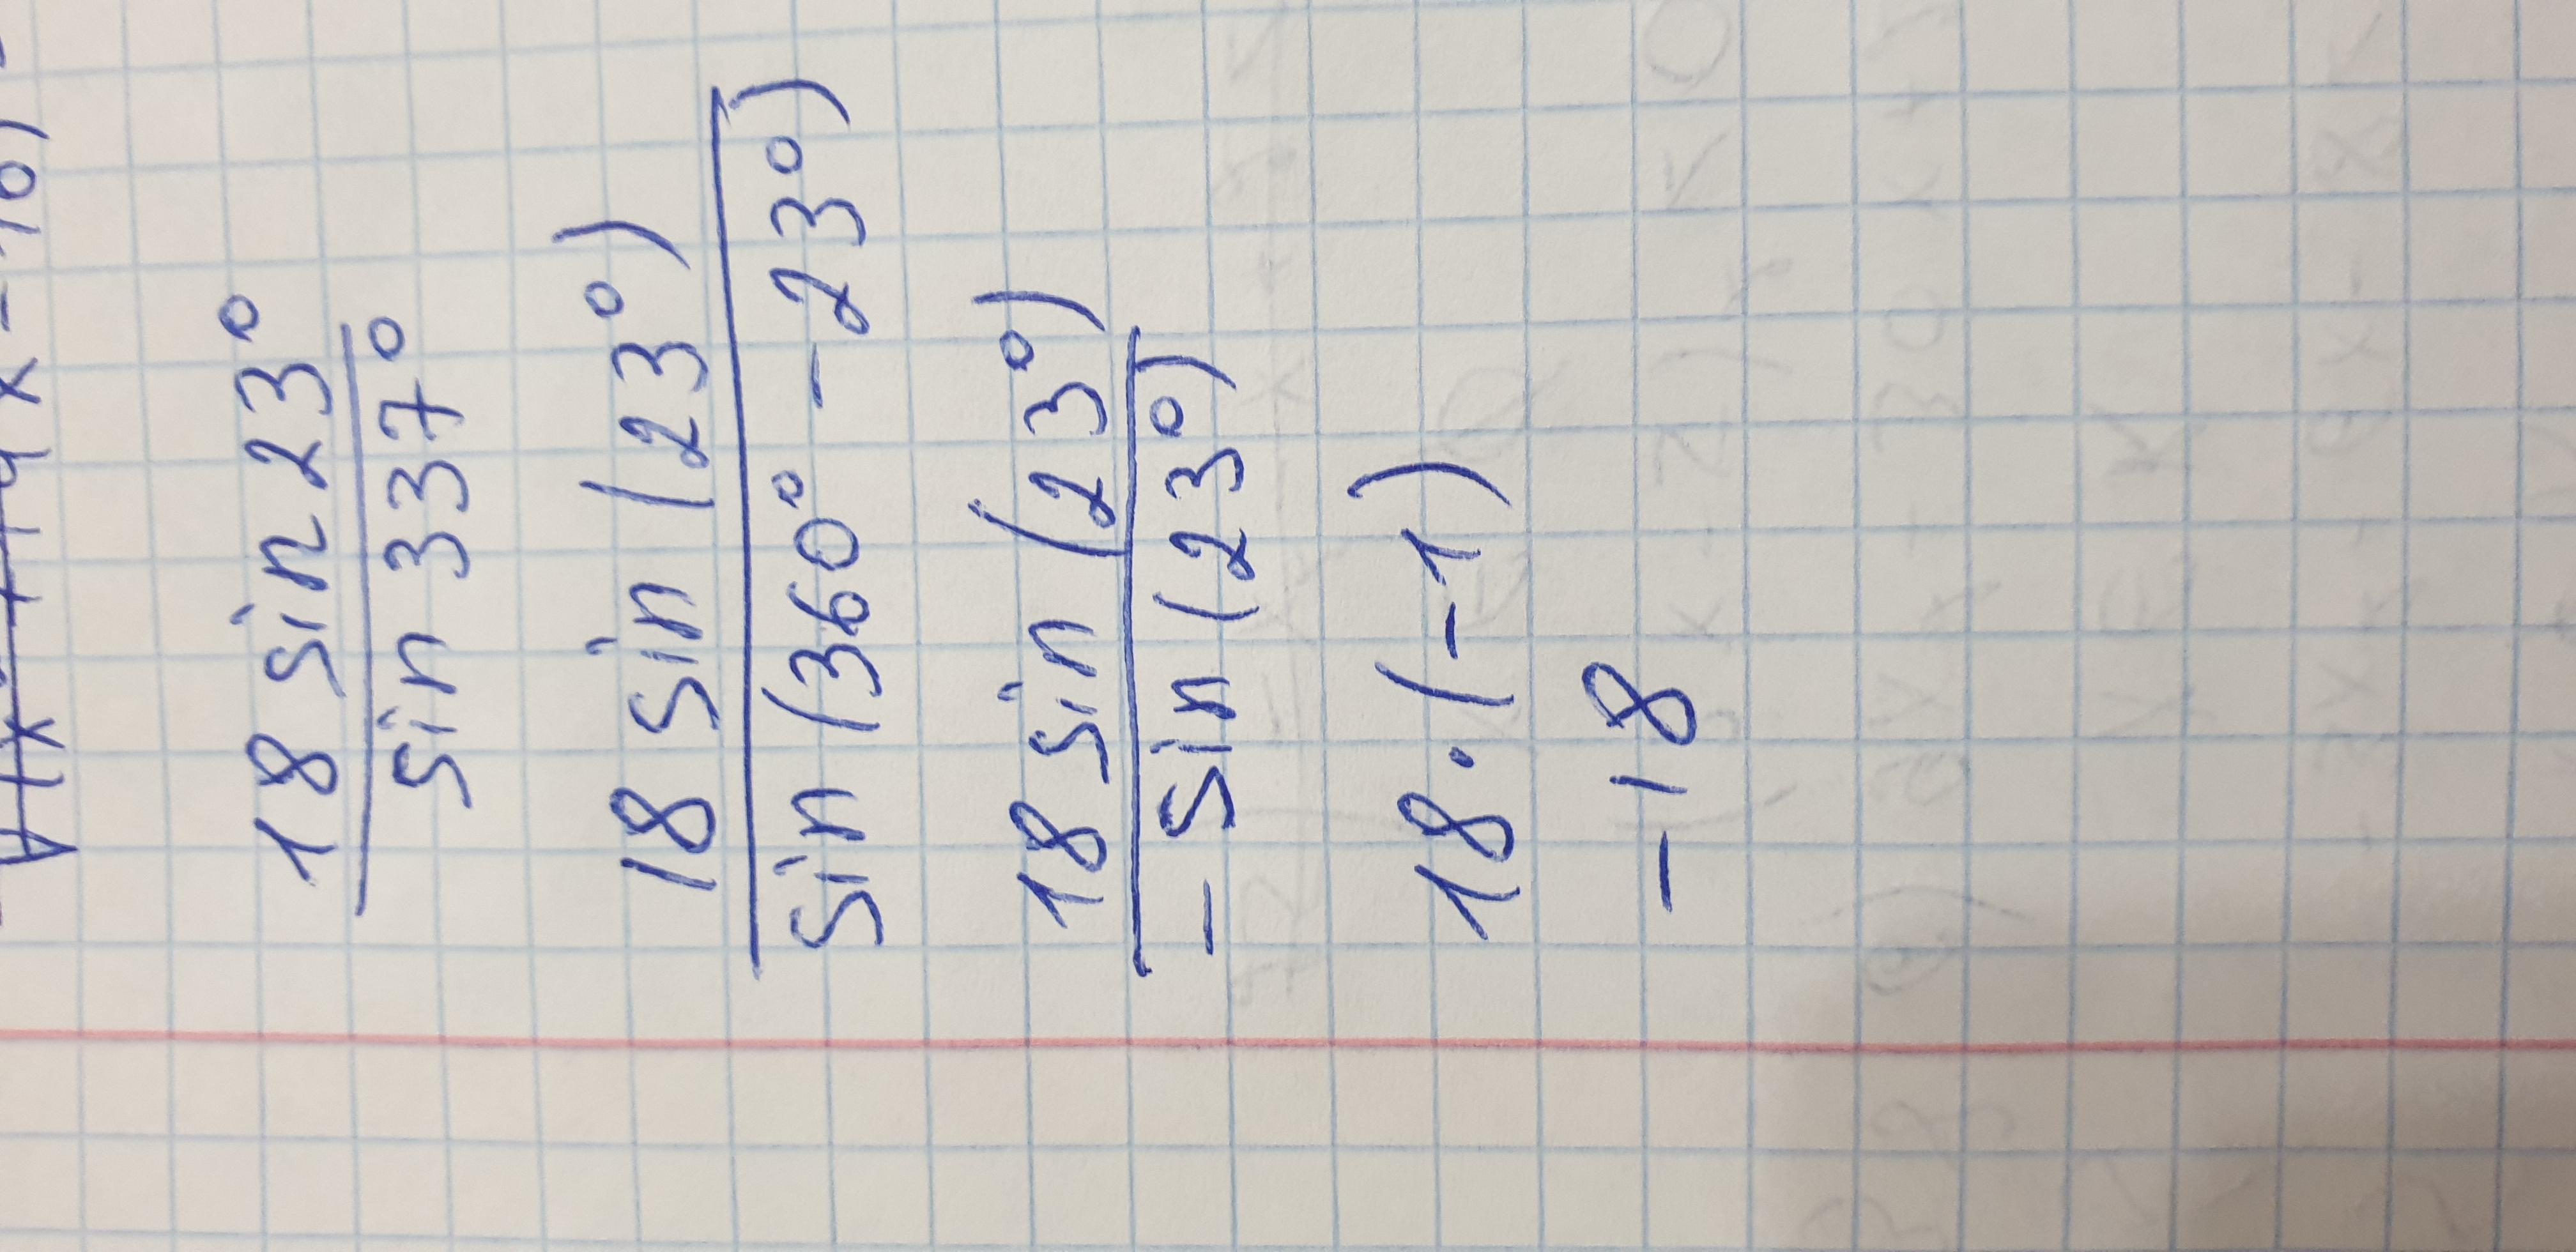 18 sin 23°
sin 337°
18 sin (23°)
sin (360° - 23°)
18 sin (23°)
- sin (23°)
18 · (-1)
-18